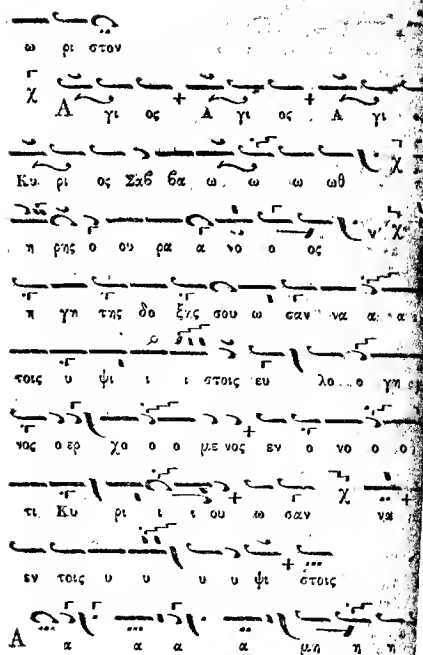 ω ρι στον
Α γι ος Α γι ος Α γι
Κυ ρι ος Σαβ βα ω ω ω ωθ
η ρης ο ου ρα α νο ο ος
η γη της δο ξης σου ω σαν να α α
τοις υ ψι ι ι στοις ευ λο ο γη
νος ο ερ χο ο ο με νος εν ο νο ο ο
τι Κυ ρι ι ι ου ω σαν να
εν τοις υ υ υ υ ψι στοις
Α α α α α μη η η